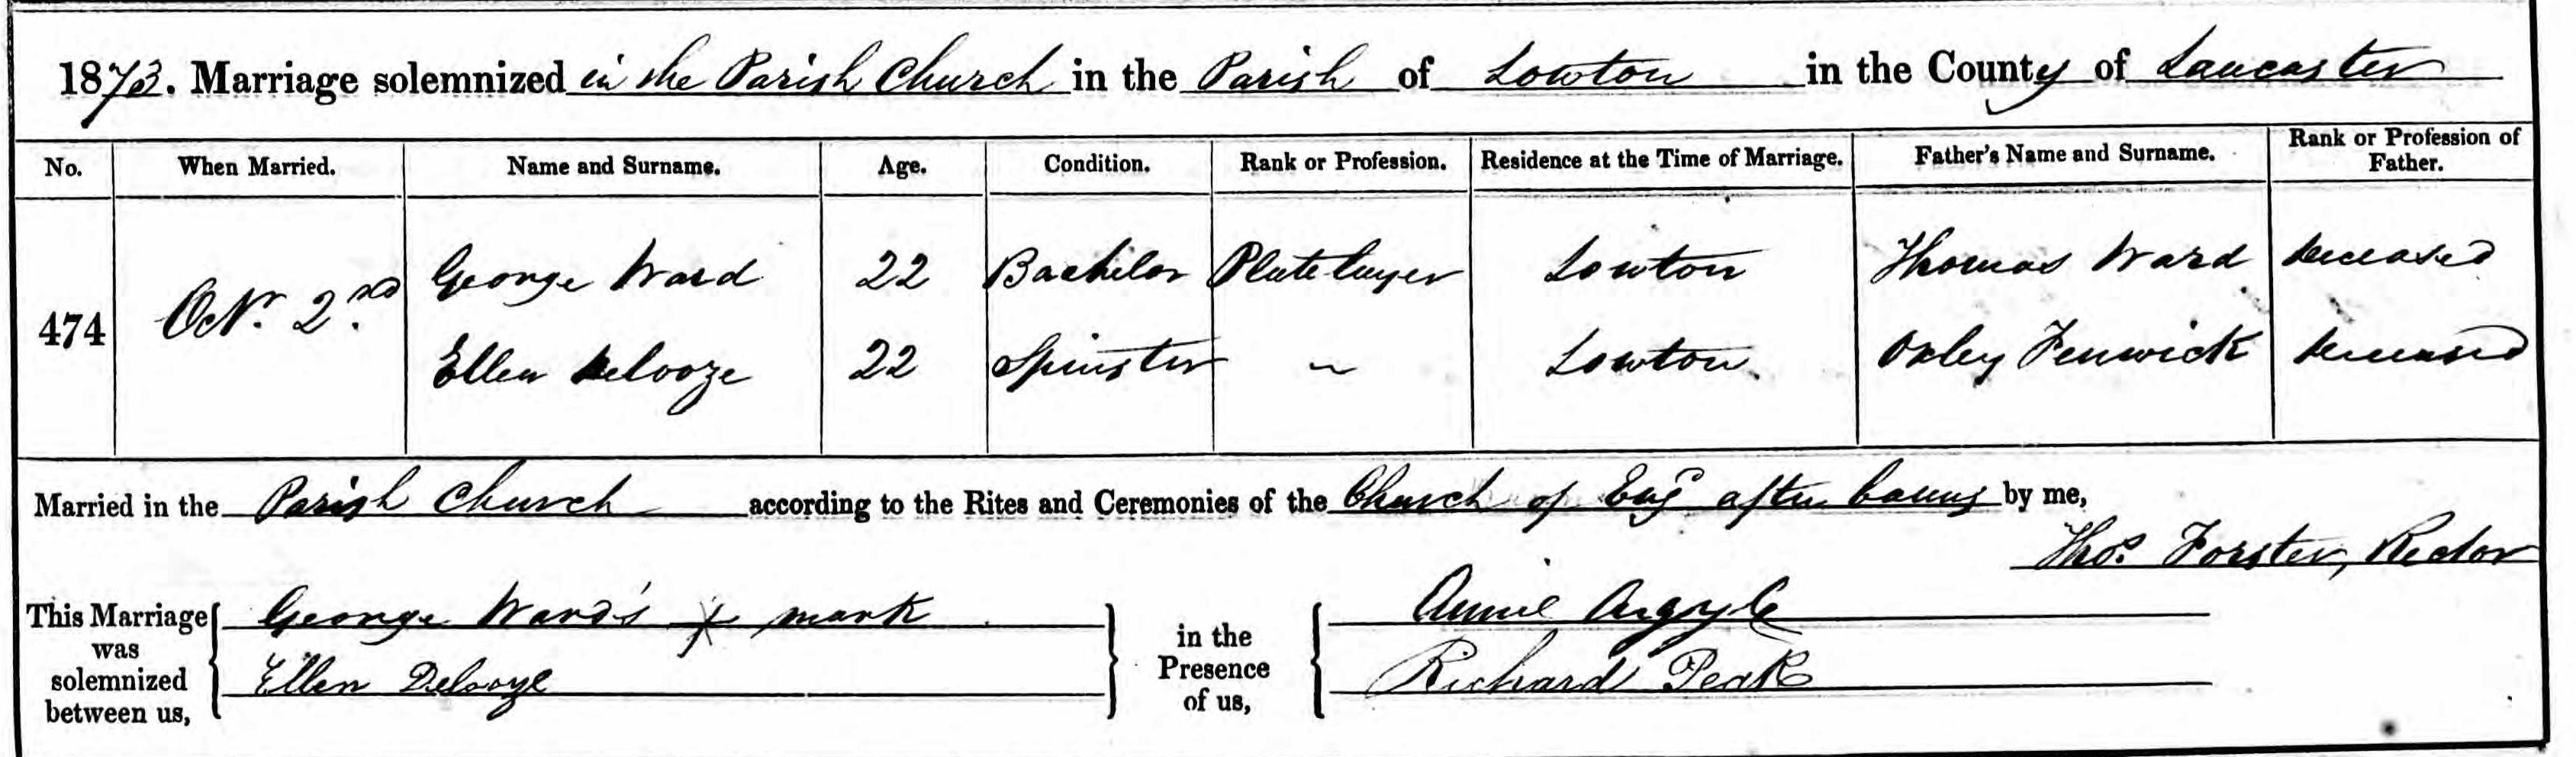 1873. Marriage solemnized in the Parish Church in the Parish of Lowton in the County of Lancaster
No. When Married. Name and Surname. Age. Condition. Rank or Profession. Residence at the Time of Marriage. Father's Name and Surname. Rank or Profession of Father.
474 Oct. 2nd. George Ward 22 Bachelor Platelayer Lowton Thomas Ward deceased
Ellen Delooze 22 Spinster ~ Lowton. Oxley Fenwick deceased
Married in the Parish Church according to the Rites and Ceremonies of the Church of Engd after banns by me,
Thos. Forster, Rector
This Marriage was solemnized between us, George Ward's x mark in the Presence of us, Annie Argyle
Ellen Delooze Richard Peak